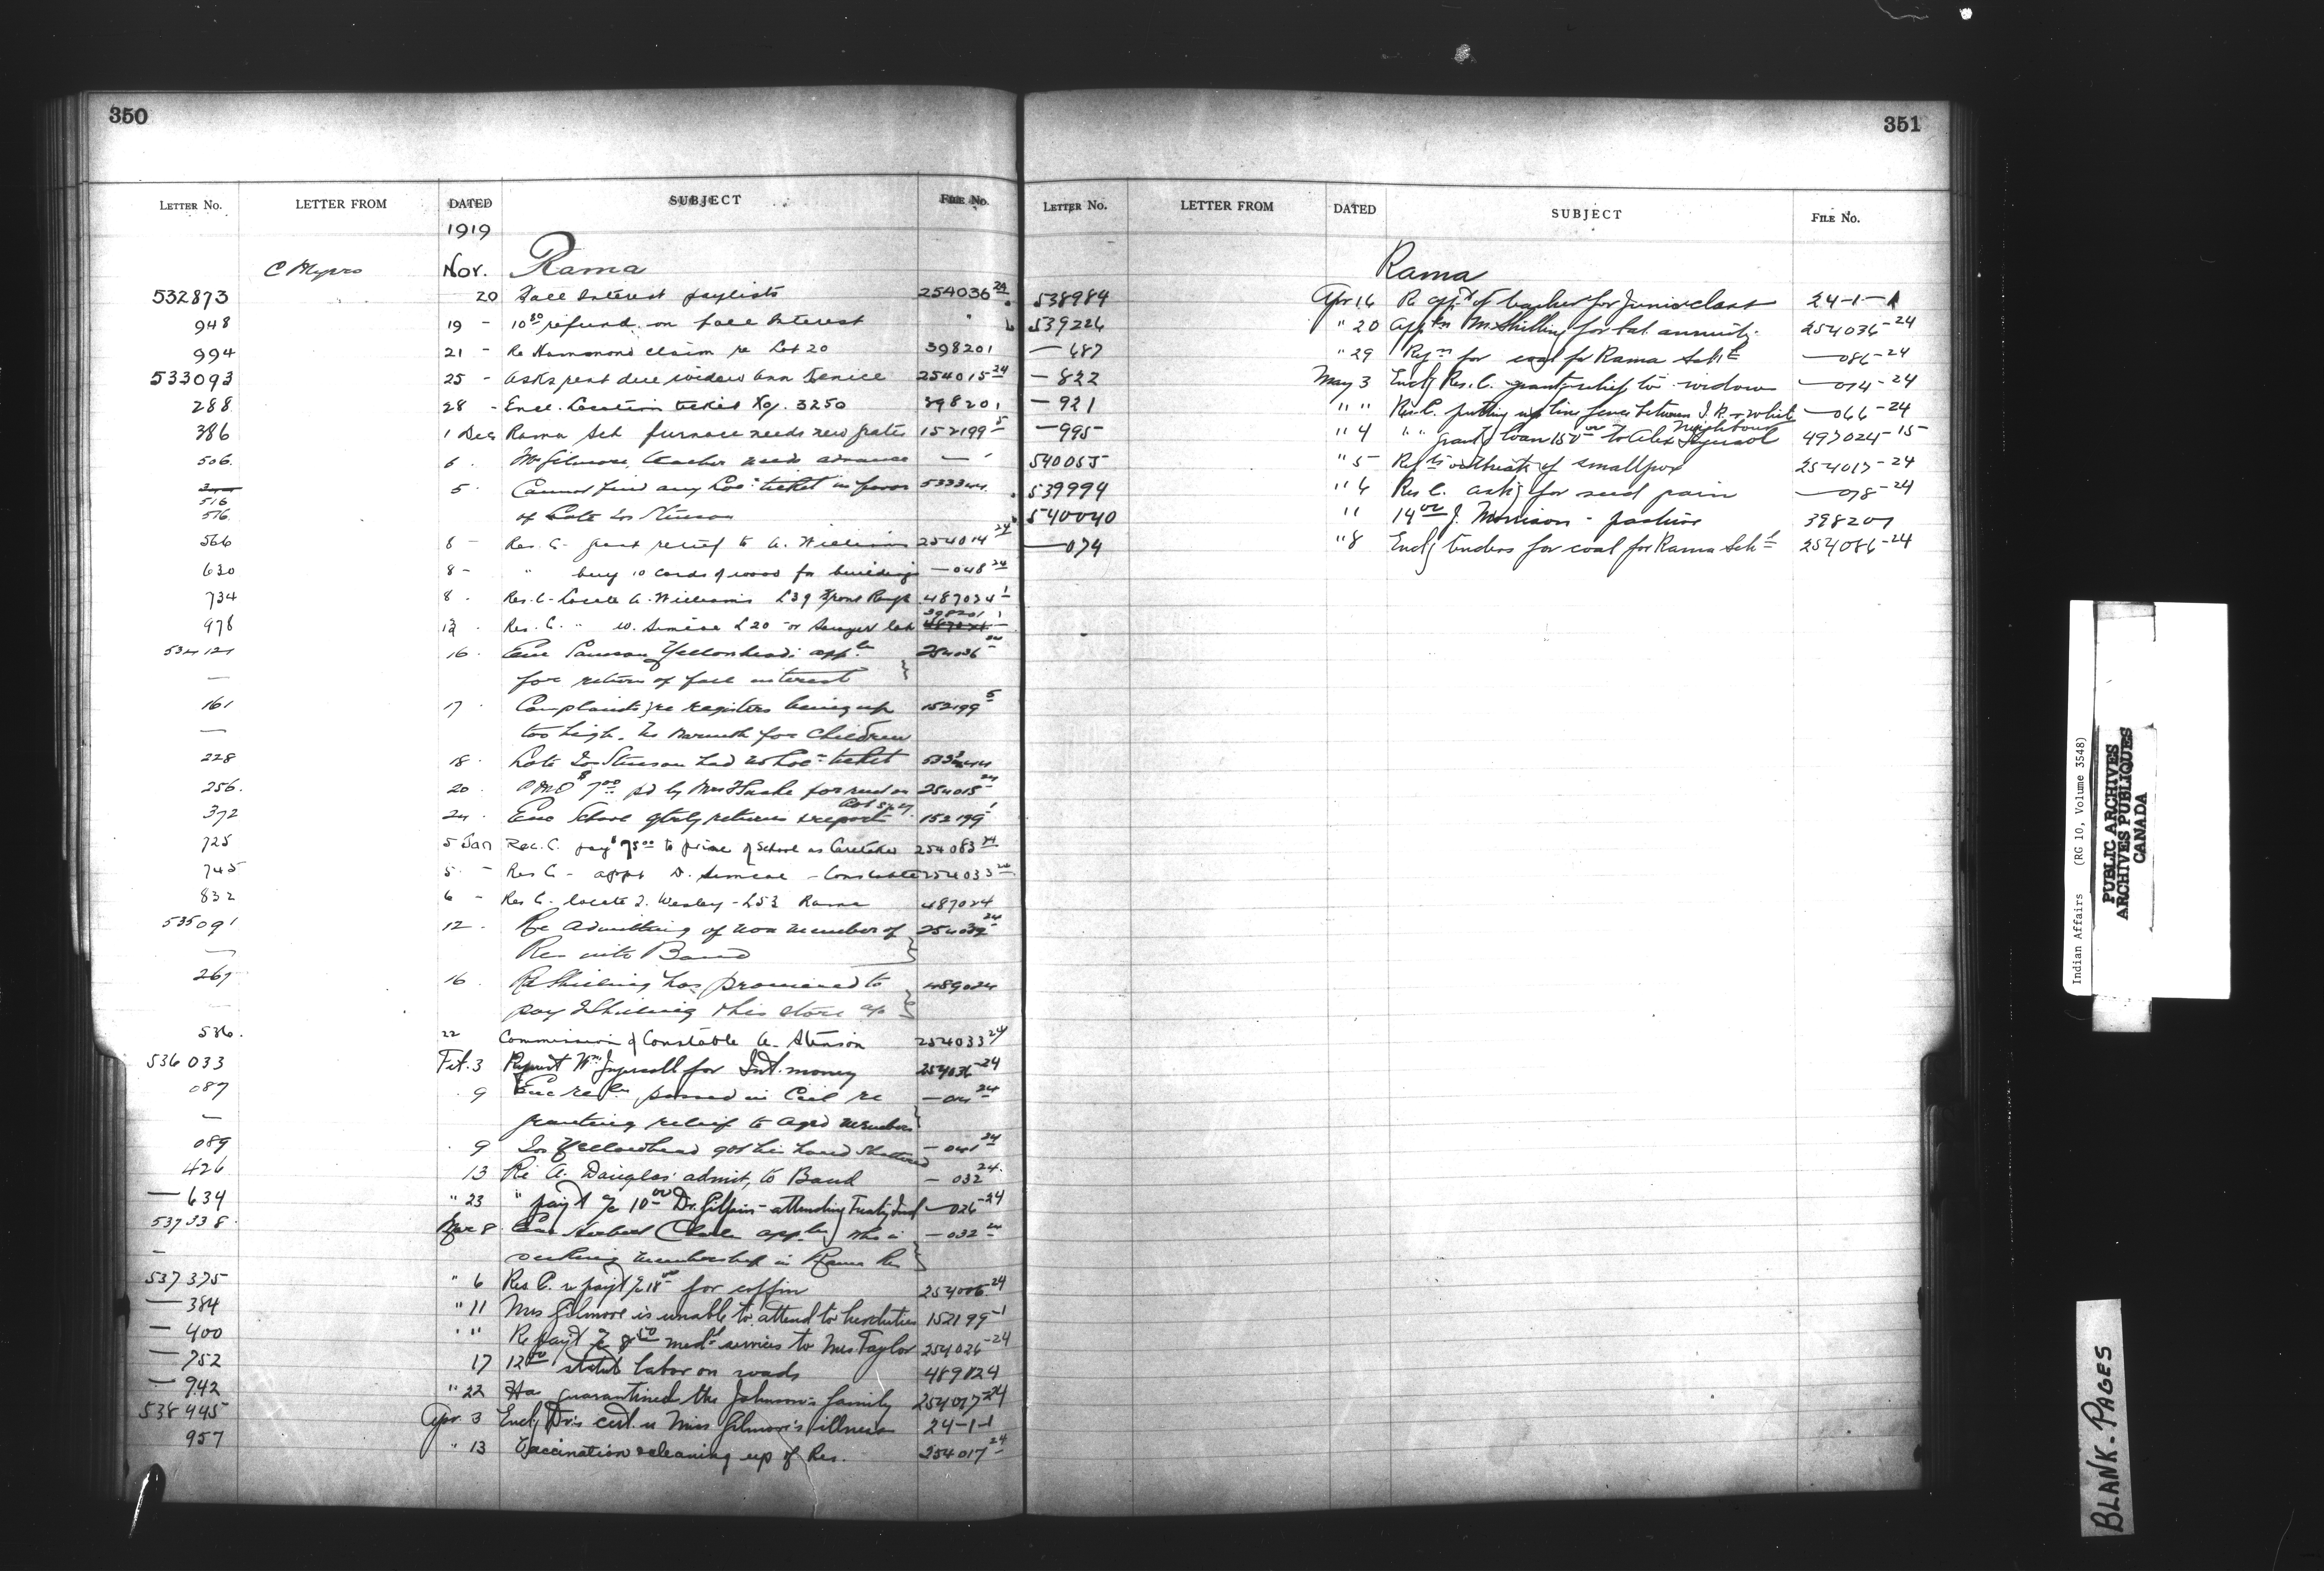 350
LETTER No. LETTER FROM DATED SUBJECT FILE No.
1919
Nov. Rama
532873 20 Fall Interest paylists 254036 24
948 19 - 10 50 refund on fall Interest "
994 21 - Re Hammond claim re Lot 20 398201
533093 25 - Asks rent due widow Ann 254015 24
288 28 - Encl. Location ticket No. 3250 398201
386 1 Dec Rama Sch furnace needs new grates 152199 5
506. 6. Gilmore, teacher needs advance — "
516 5. Cannot find any Loc: ticket in favor
516. of Late Stinson
566 8 - Res. C. grant relief to A. Williams 254014 24
630 8 - " buy 10 cords of wood for buildings — 048 24
734 8. Res. C. Locate A. Williams L39 Front Range 487024 1
978 Res. C. " W. Simcoe L20 or Sawyer lot 398201 1
534121 16. Enc Yellowhead's appln 254036 24
— for return of fall interest
161 17. Complaints re registers being up 152199 5
— too high. No warmth for children
228 18. Late Stinson had no loc: ticket
256. 20. $7 00 pd by Mrs for rent on 254015 24
372 24. Enc School qtrly returns & report 152199 1
725 5 Jan Res. C. pay $75 00 to of School as Caretaker 254083 24
745 5. - Res C - appt D. Simcoe - Constable 254033 24
832 6 - Res C. locate J. Wesley - L53 Rama 487024
535091 12. Re admitting of non member of 254032 24
— Res into Band
267 16. Re Shilling has promised to 489024
pay Shilling this store a/c
536. 22 Commission of Constable A. Stinson 254033 24
536033 Feb. 3 Request Wm Ingersoll for Int. money 254036-24
087 9 Enc passed in Ccil re
— granting relief to aged members
089 9 Yellowhead got his hand shattered — 041 24
426 13 Re A. Douglas admit, to Band — 032 24.
— 634 " 23 " pay't a/c 10 00 Dr. Gilpin - attending — 026-24
537338. Mar 8 appln who is — 032 24
— seeking membership in Rama Res
537375 " 6 Res C. re pay't a/c 18 00 for coffin 254006-24
— 384 " 11 Mrs Gilmore is unable to attend to her duties 152199-1
— 400 " " Re pay't a/c 8 50 med'l services to Mrs Taylor 254026-24
— 752 17 12 00 statute labor on roads 489024
— 942 " 22 Has quarantined the Johnson's family 254017-24
538445 Apr. 3 Encl'g Dr's cert. re Miss Gilmore's illness 24-1-1
957 " 13 Vaccination & cleaning up of Res. 254017 24
351
LETTER No. LETTER FROM DATED SUBJECT FILE No.
Rama
538984 Apr 16 Re app't of teacher for Junior class 24-1-1
539226 " 20 Appln M. Shilling for bal. annuity. 254036-24
— 687 " 29 Reqn for coal for Rama Sch'l — 086-24
— 822 May 3 Encl'g Res. C. grant relief to widow — 014-24
— 921 " " Res. C. putting up line fence between I.R. & white Neighbours — 066-24
— 995 " 4 " " grant'g loan 150 00 to Alex Ingersol 497024-15
540055 " 5 outbreak of smallpox 254017-24
539994 " 6 Res C. ask'g for seed grain — 078-24
540040 " 14 00 J. Morrison - pasture 398201
— 074 " 8 Encl'g tenders for coal for Rama Sch'l 254086-24
Indian Affairs (RG 10, Volume 3548)
PUBLIC ARCHIVES
ARCHIVES PUBLIQUES
CANADA
BLANK-PAGES